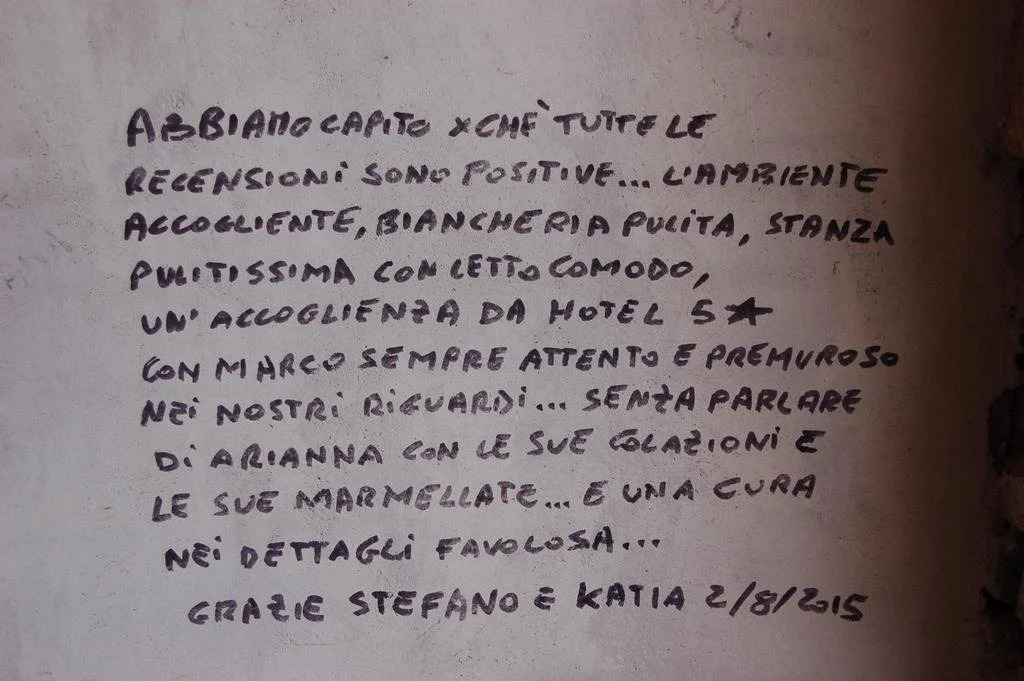 ABBIAMO CAPITO XCHÈ TUTTE LE
RECENSIONI SONO POSITIVE... L'AMBIENTE
ACCOGLIENTE, BIANCHERIA PULITA, STANZA
PULITISSIMA CON LETTO COMODO,
UN'ACCOGLIENZA DA HOTEL 5★
CON MARCO SEMPRE ATTENTO E PREMUROSO
NEI NOSTRI RIGUARDI... SENZA PARLARE
DI ARIANNA CON LE SUE COLAZIONI E
LE SUE MARMELLATE... E UNA CURA
NEI DETTAGLI FAVOLOSA...
GRAZIE STEFANO E KATIA 2/8/2015